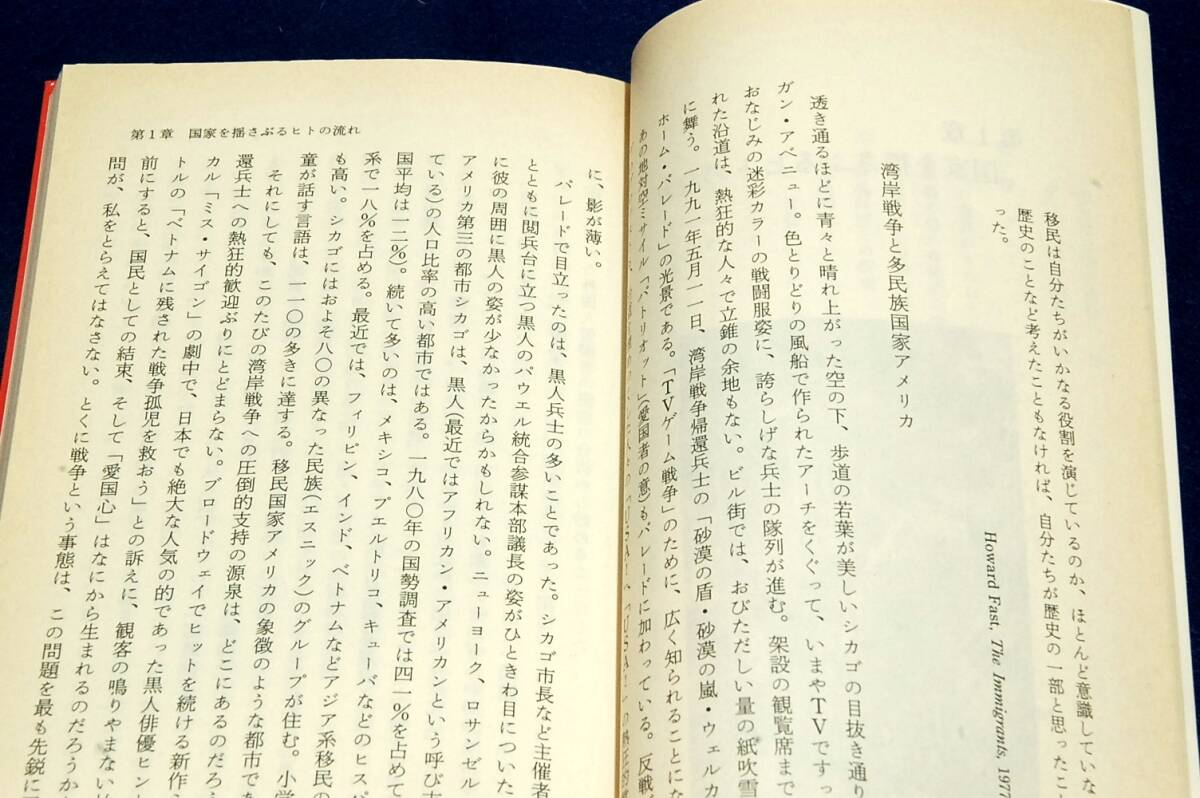 移民は自分たちがいかなる役割を演じているのか、ほとんど意識していな
歴史のことなど考えたこともなければ、自分たちが歴史の一部と思ったこ
った。
Howard Fast, The Immigrants, 1977
湾岸戦争と多民族国家アメリカ
透き通るほどに青々と晴れ上がった空の下、歩道の若葉が美しいシカゴの目抜き通り
ガン・アベニュー。色とりどりの風船で作られたアーチをくぐって、いまやTVですっ
おなじみの迷彩カラーの戦闘服姿に、誇らしげな兵士の隊列が進む。架設の観覧席まで
れた沿道は、熱狂的な人々で立錐の余地もない。ビル街では、おびただしい量の紙吹雪
に舞う。一九九一年五月一一日、湾岸戦争帰還兵士の「砂漠の盾・砂漠の嵐・ウェルカ
ホーム・パレード」の光景である。「TVゲーム戦争」のために、広く知られることにな
あの地対空ミサイル「パトリオット」(愛国者の意)もパレードに加わっている。反戦
第1章 国家を揺さぶるヒトの流れ
に、影が薄い。
パレードで目立ったのは、黒人兵士の多いことであった。シカゴ市長など主催者
とともに閲兵台に立つ黒人のパウエル統合参謀本部議長の姿がひときわ目についた
に彼の周囲に黒人の姿が少なかったからかもしれない。ニューヨーク、ロサンゼル
アメリカ第三の都市シカゴは、黒人(最近ではアフリカン・アメリカンという呼び方
ている)の人口比率の高い都市ではある。一九八〇年の国勢調査では四一%を占めて
国平均は一二%)。続いて多いのは、メキシコ、プエルトリコ、キューバなどのヒスパ
系で一八%を占める。最近では、フィリピン、インド、ベトナムなどアジア系移民の
も高い。シカゴにはおよそ八〇の異なった民族(エスニック)のグループが住む。小学
童が話す言語は、一一〇の多きに達する。移民国家アメリカの象徴のような都市であ
それにしても、このたびの湾岸戦争への圧倒的支持の源泉は、どこにあるのだろう
還兵士への熱狂的歓迎ぶりにとどまらない。ブロードウェイでヒットを続ける新作
カル「ミス・サイゴン」の劇中で、日本でも絶大な人気の的であった黒人俳優ヒン
トルの「ベトナムに残された戦争孤児を救おう」との訴えに、観客の鳴りやまない
前にすると、国民としての結束、そして「愛国心」はなにから生まれるのだろうか
問が、私をとらえてはなさない。とくに戦争という事態は、この問題を最も先鋭に